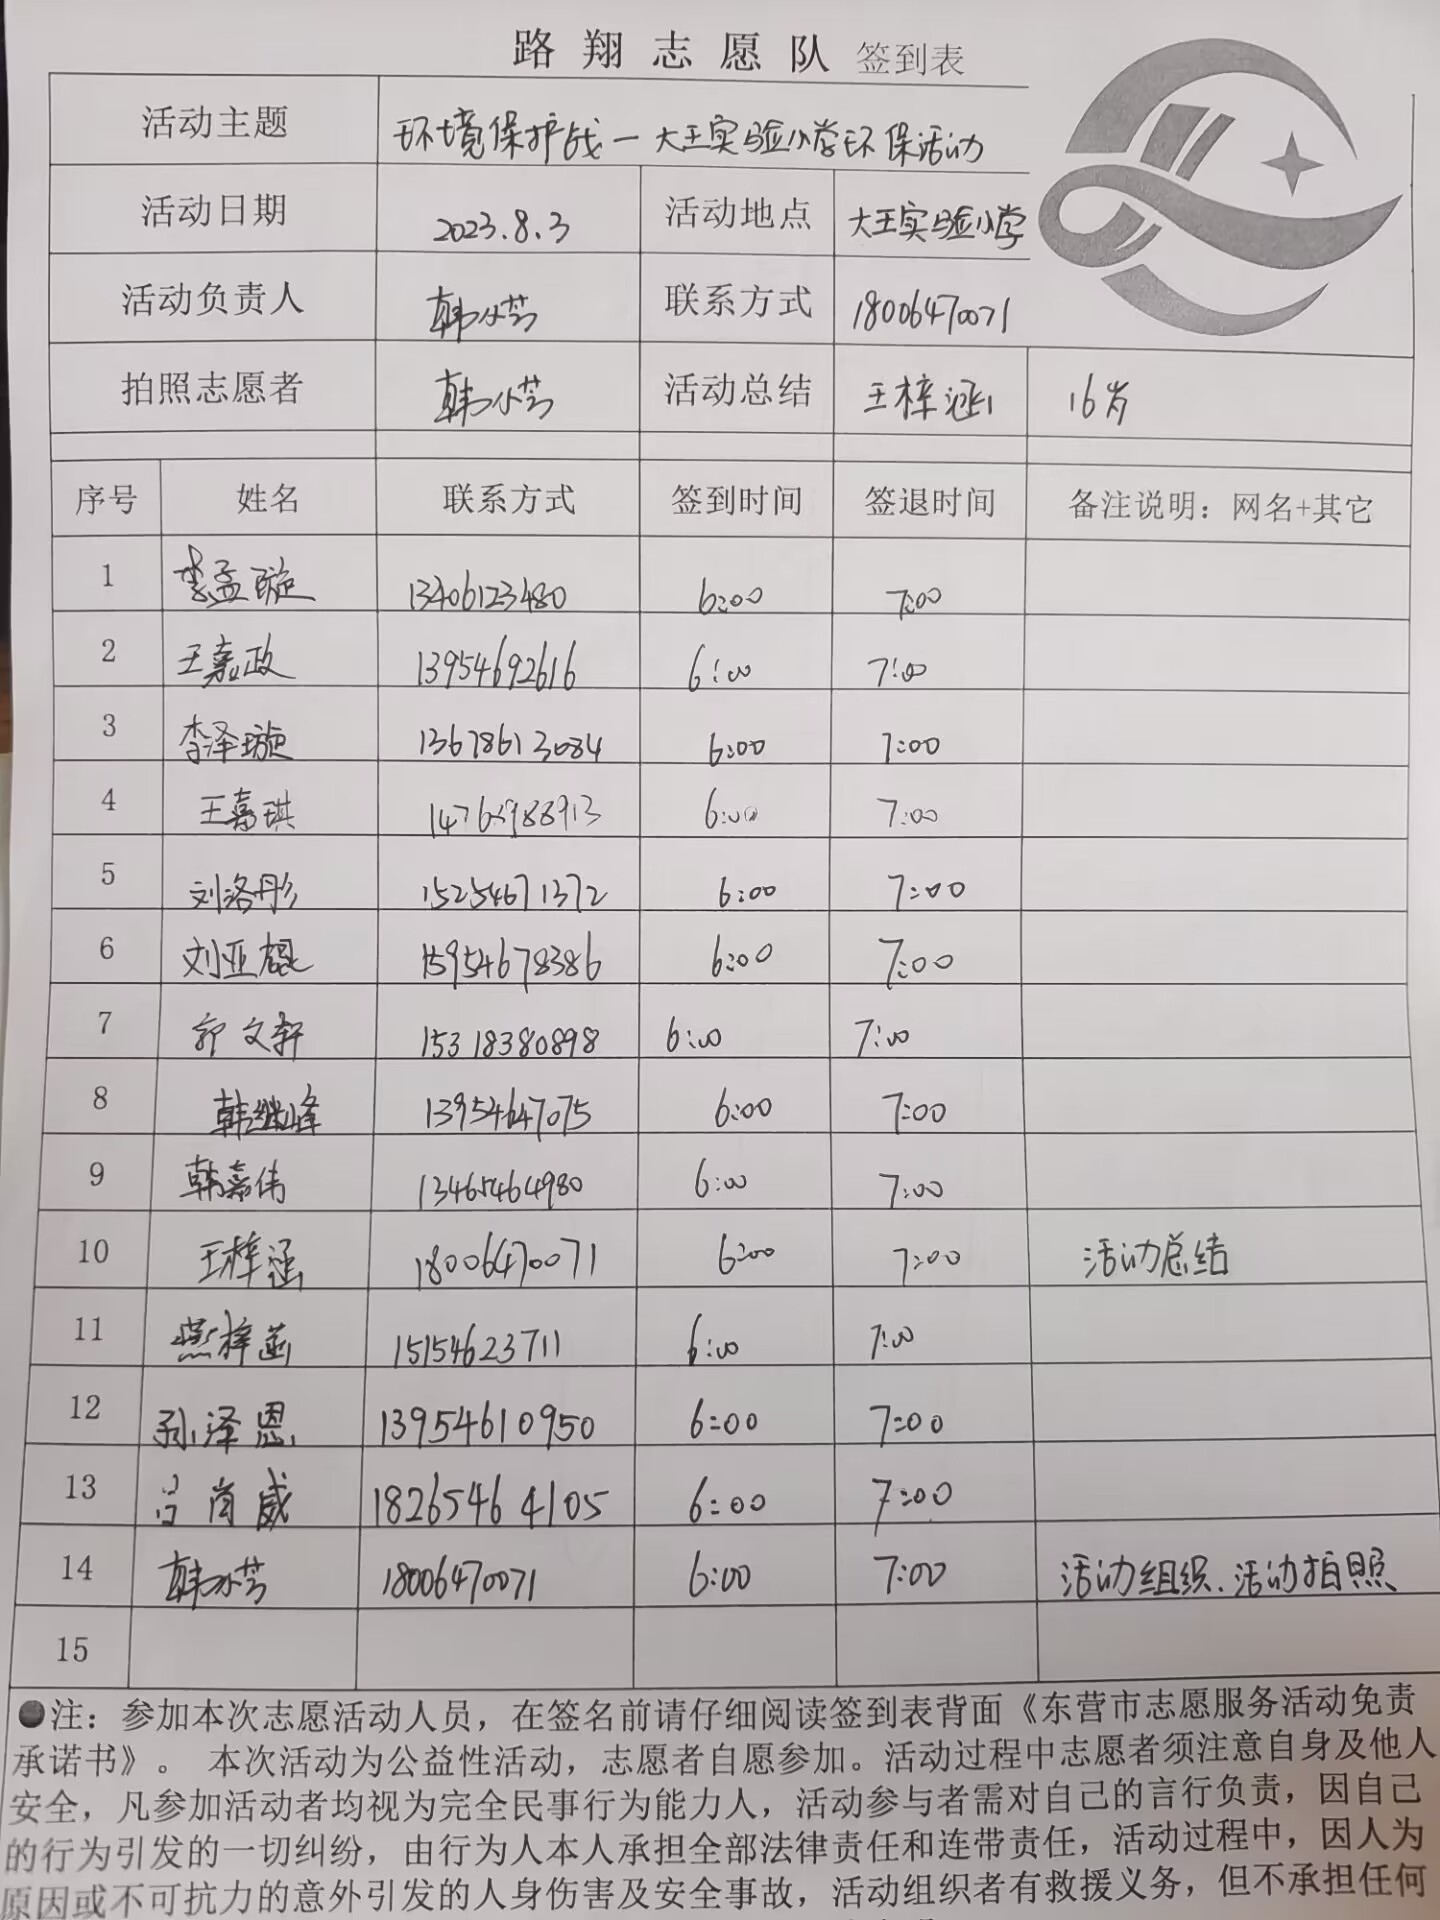 路翔志愿队 签到表
活动主题 环境保护战一大王实验小学环保活动
活动日期 2023.8.3 活动地点 大王实验小学
活动负责人 韩小芸 联系方式 18006470071
拍照志愿者 韩小芸 活动总结 王梓涵 16岁
序号 姓名 联系方式 签到时间 签退时间 备注说明：网名+其它
1 李孟璇 13406123480 6:00 7:00
2 王嘉政 13954692616 6:00 7:00
3 李泽璇 13678613084 6:00 7:00
4 王嘉琪 6:00 7:00
5 刘洛彤 15254671372 6:00 7:00
6 刘亚 15954678386 6:00 7:00
7 郭文轩 15318380898 6:00 7:00
8 韩继峰 13954647075 6:00 7:00
9 韩嘉伟 13465464980 6:00 7:00
10 王梓涵 18006470071 6:00 7:00 活动总结
11 燕梓菡 15154623711 6:00 7:00
12 孙泽恩 13954610950 6:00 7:00
13 吕尚威 18265464105 6:00 7:00
14 韩小芸 18006470071 6:00 7:00 活动组织、活动拍照
15
●注：参加本次志愿活动人员，在签名前请仔细阅读签到表背面《东营市志愿服务活动免责
承诺书》。 本次活动为公益性活动，志愿者自愿参加。活动过程中志愿者须注意自身及他人
安全，凡参加活动者均视为完全民事行为能力人，活动参与者需对自己的言行负责，因自己
的行为引发的一切纠纷，由行为人本人承担全部法律责任和连带责任，活动过程中，因人为
原因或不可抗力的意外引发的人身伤害及安全事故，活动组织者有救援义务，但不承担任何